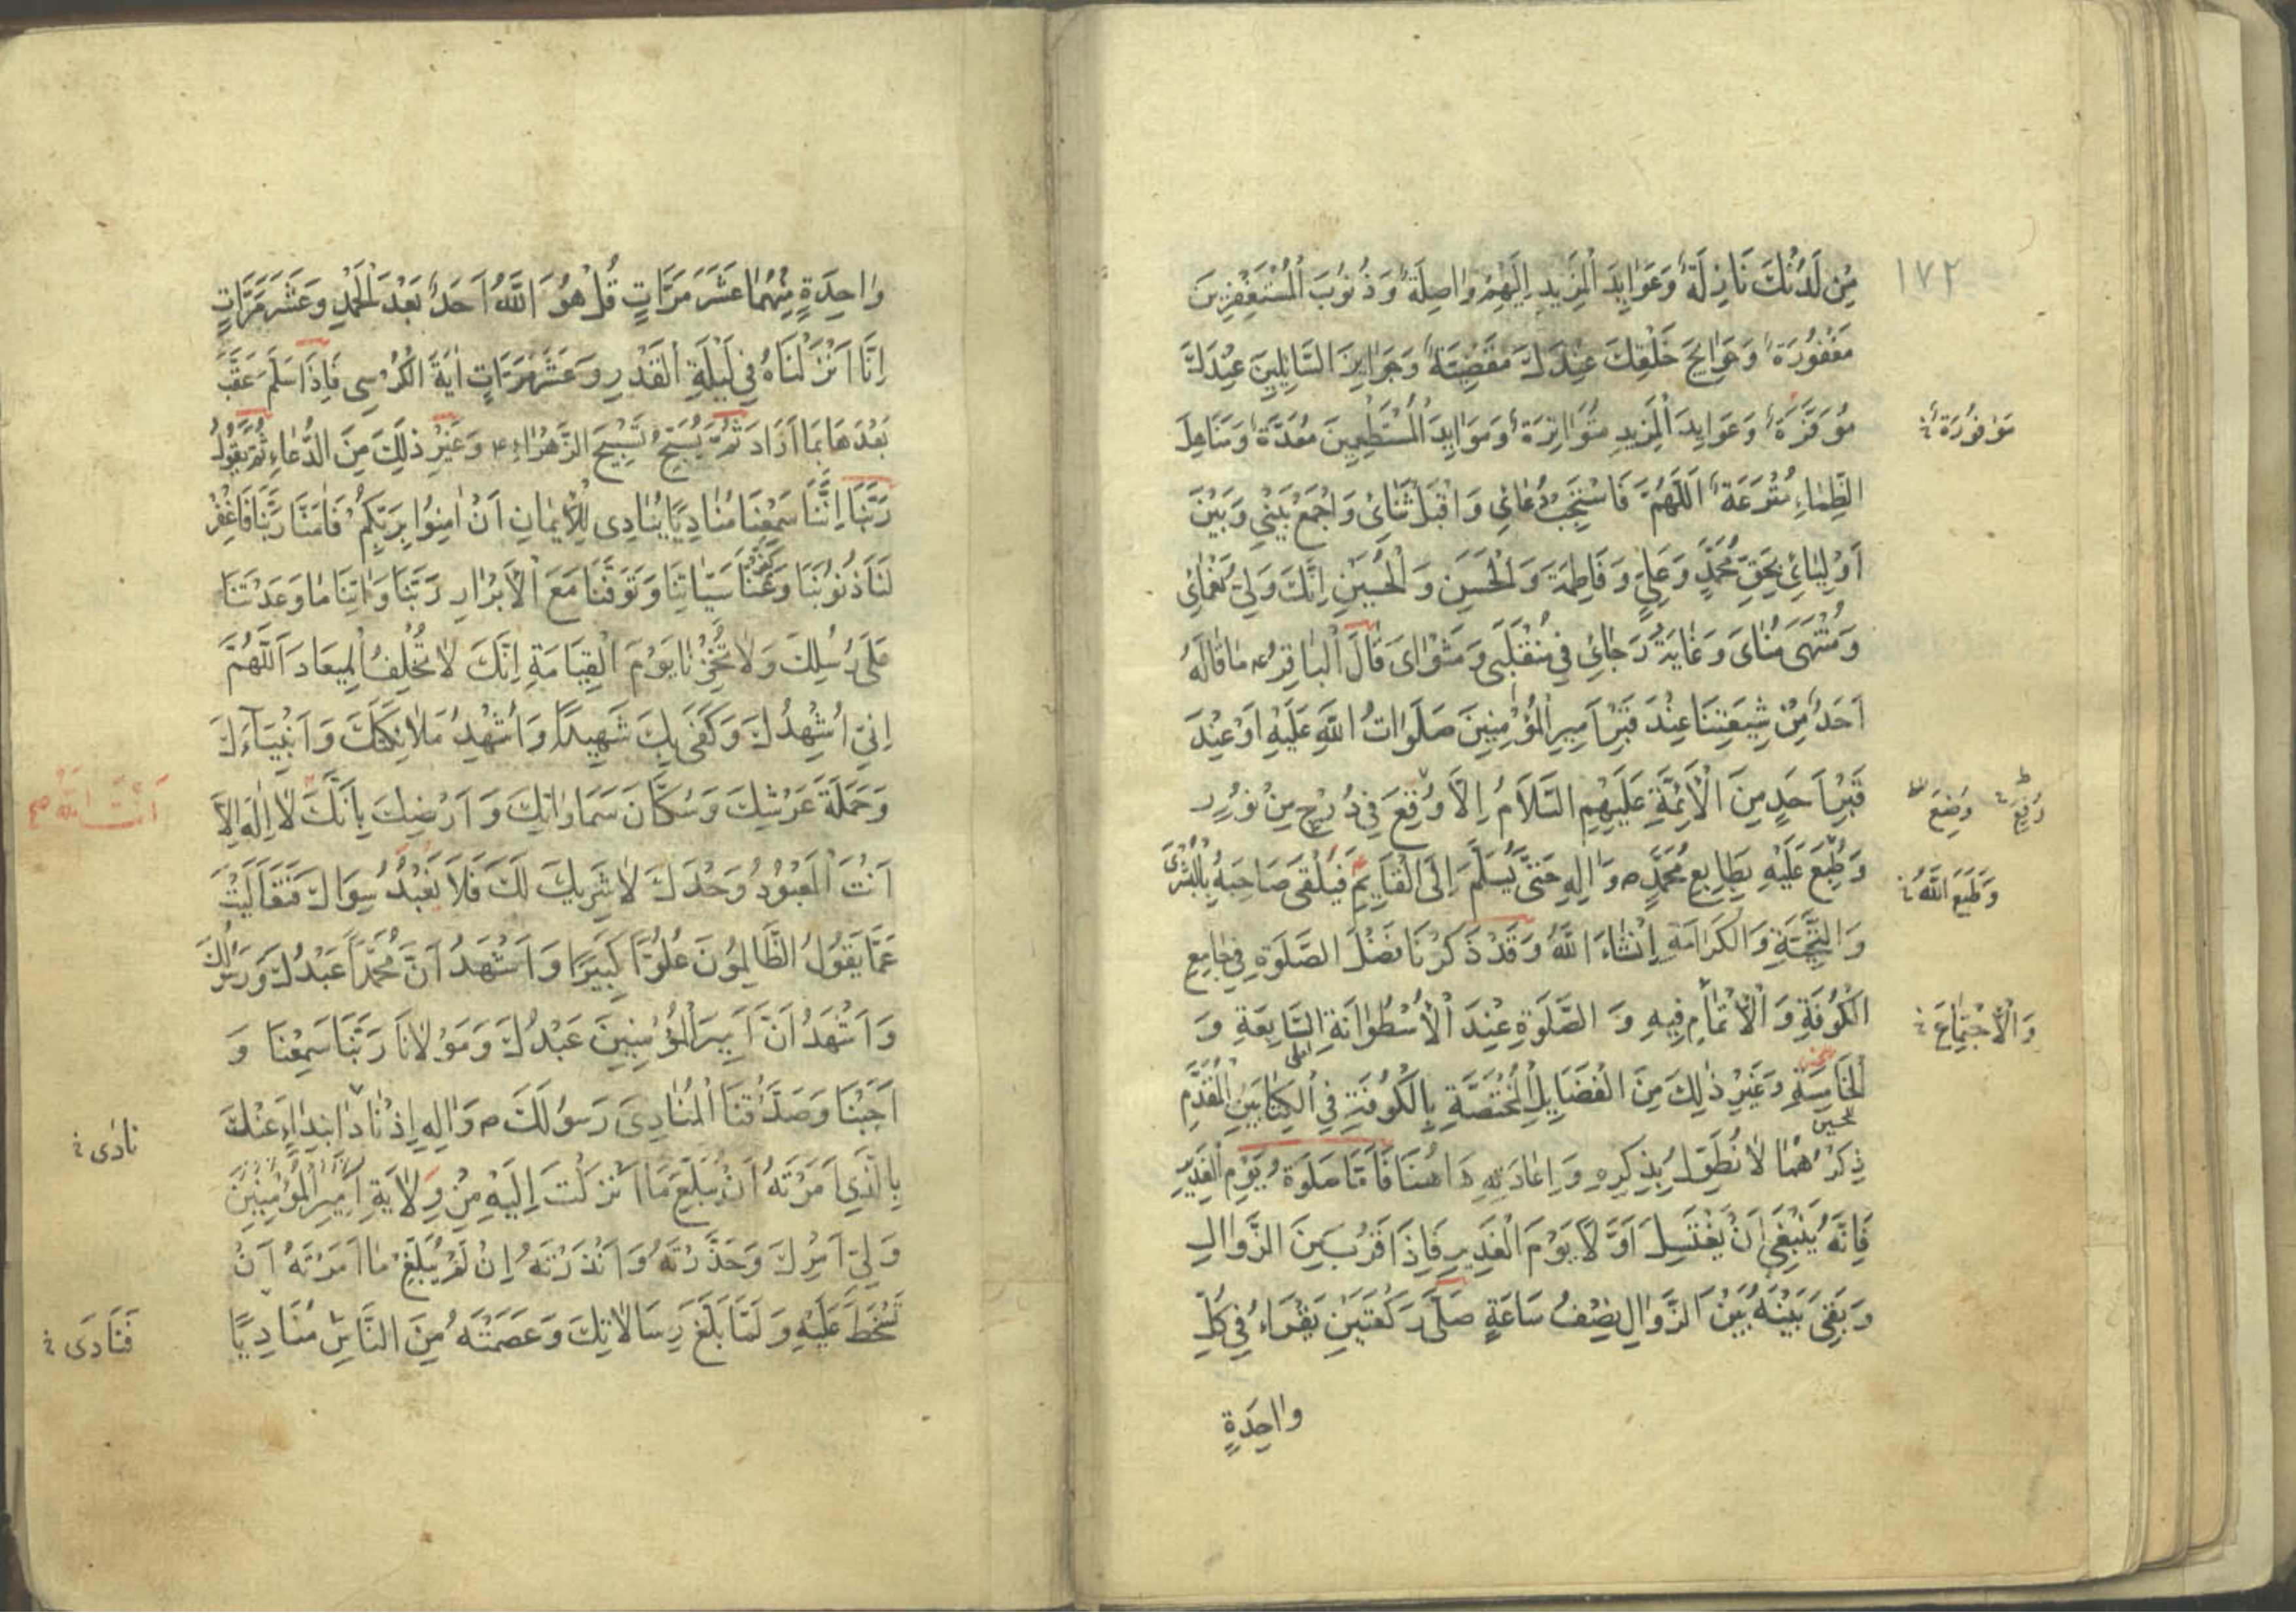 ١٧٢
مِنْ لَدُنْكَ نَازِلَةٌ وَعَوَايِدَ الْمَزِيدِ اِلَيْهِمْ وٰاصِلَةٌ وَذُنُوبَ الْمُسْتَغْفِرِينَ
مَغْفُورَةٌ وَحَوَايِجَ خَلْقِكَ عِنْدَكَ مَقْضِيَّةٌ وَجَوَايِزَ السَّايِلِينَ عِنْدَكَ
مُوَفَّرَةٌ وَعَوَايِدَ الْمَزِيدِ مُتَوٰاتِرَةٌ وَمَوَايِدَ الْمُسْتَطْعِمِينَ مُعَدَّةٌ وَمَنَاهِلَ
مَوْفُورَةٌ خ
الظِّمٰاءِ مُتْرَعَةٌ اَللّٰهُمَّ فَاسْتَجِبْ دُعٰائِي وَاقْبَلْ ثَنٰائِى وَاجْمَعْ بَيْنِي وَبَيْنَ
اَوْلِيٰائِي بِحَقِّ مُحَمَّدٍ وَعَلِيٍّ وَفَاطِمَةَ وَالْحَسَنِ وَالْحُسَيْنِ اِنَّكَ وَلِيُّ نَعْمٰائِى
وَمُنْتَهَى مُنٰاىَ وَغٰايَةُ رَجٰائِي فِي مُنْقَلَبِى وَمَثْوٰاىَ قٰالَ الْبٰاقِرُ ع مٰا قٰالَهُ
اَحَدٌ مِنْ شِيعَتِنَا عِنْدَ قَبْرِ اَمِيرِ الْمُؤْمِنِينَ صَلَوٰاتُ اللّٰهِ عَلَيْهِ اَوْ عِنْدَ
قَبْرِ اَحَدٍ مِنَ الْاَئِمَّةِ عَلَيْهِمِ السَّلاَمُ اِلاَّ وُقِعَ فِي دُرْجٍ مِنْ نُورٍ
وَضِعَ
رُفِعَ خ
وَطُبِعَ عَلَيْهِ بِطَابِعِ مُحَمَّدٍ ص وَاٰلِهِ حَتّٰى يُسَلَّمَ اِلَى الْقَايِمِ فَيَلْقَى صَاحِبَهُ بِالْبُشْرىٰ
وَطَبَعَ اللّٰهُ خ
وَالتَّحِيَّةِ وَالْكَرَامَةِ اِنْشَاءَ اللّٰهُ وَقَدْ ذَكَرْنَا فَضْلَ الصَّلَوةِ فِي جَامِعِ
الْكُوفَةِ وَالْاِتْمٰامِ فِيهِ وَ الصَّلَوةِ عِنْدَ الْاُسْطُوٰانَةِ السَّابِعَةِ وَ
وَالْاِجْتِمَاعَ خ
الْخَامِسَةِ وَغَيْرِ ذٰلِكَ مِنَ الْفَضَايِلِ الْمُخْتَصَّةِ بِالْكُوفَةِ فِي الْكِتٰابَيْنِ الْمُقَدَّمِ
ذِكْرُهُمٰا لاٰ نُطَوِّلُ بِذِكْرِهِ وَاِعَادَتِهِ هٰاهُنَا فَاَمَّا صَلَوةُ يَوْمِ الْغَدِيرِ
فَاِنَّهُ يَنْبَغِي اَنْ يَغْتَسِلَ اَوَّلاً يَوْمَ الْغَدِيرِ فَاِذَا قَرُبَ مِنَ الزَّوٰالِ
وَبَقِيَ بَيْنَهُ بَيْنَ الزَّوٰالِ نِصْفُ سَاعَةٍ صَلَّى رَكْعَتَيْنِ يَقْرَاءُ فِي كُلِّ
وٰاحِدَةٍ
وٰاحِدَةٍ مِنْهُمٰا عَشَرَ مَرَّاتٍ قُلْ هُوَ اللّٰهُ اَحَدٌ بَعْدَ الْحَمْدِ وَعَشَرَ مَرَّاتٍ
اِنَّا اَنْزَلْنَاهُ فِي لَيْلَةِ الْقَدْرِ وَعَشَرَ مَرَّاتٍ اٰيَةَ الْكُرْسِى فَاِذَا سَلَّمَ عَقَّبَ
بَعْدَهَا بِمَا اَرَادَ ثُمَّ يُسَبِّحُ تَسْبِيحَ الزَّهْرٰاءِ ع وَغَيْرِ ذٰلِكَ مِنَ الدُّعٰاءِ ثُمَّ يَقُولُ
رَبَّنٰا اِنَّنٰا سَمِعْنٰا مُنٰادِيًا يُنٰادِى لِلْاِيمٰانِ اَنْ اٰمِنُوا بِرَبِّكُمْ فَاٰمَنَّا رَبَّنٰا فَاغْفِرْ
لَنٰا ذُنُوبَنٰا وَكَفِّرْ عَنَّا سَيِّاٰتِنَا وَتَوَفَّنٰا مَعَ الْاَبْرٰارِ رَبَّنٰا وَاٰتِنٰا مٰا وَعَدْتَنٰا
عَلَى رُسُلِكَ وَلاٰ تُخْزِنٰا يَوْمَ الْقِيَامَةِ اِنَّكَ لاٰ تُخْلِفُ الْمِيعَادَ اَللّٰهُمَّ
اِنّي اُشْهِدُكَ وَكَفَى بِكَ شَهِيدًا وَاُشْهِدُ مَلاٰئِكَتَكَ وَاَنْبِيَآءَكَ
وَحَمَلَةَ عَرْشِكَ وَسُكَّانَ سَمَاوٰاتِكَ وَاَرْضِكَ بِاَنَّكَ لاٰ اِلٰهَ اِلاَّ
اَنْتَ اللّٰهُ صح
اَنْتَ الْمَعْبُودُ وَحْدَكَ لاٰ شَرِيكَ لَكَ فَلاَ يُعْبَدُ سِوَاكَ فَتَعَالَيْتَ
عَمَّا يَقُولُ الظَّالِمُونَ عُلُوًّا كَبِيرًا وَاَشْهَدُ اَنَّ مُحَمَّدًا عَبْدُكَ وَرَسُولُكَ
وَاَشْهَدُ اَنَّ اَمِيرَ الْمُؤْمِنِينَ عَبْدُكَ وَمَوْلاٰنَا رَبَّنَا سَمِعْنَا وَ
اَجَبْنَا وَصَدَّقْنَا الْمُنٰادِىَ رَسُولَكَ ص وَاٰلِهِ اِذْ نٰادٰا بِنِدٰاءٍ عَنْكَ
نٰادٰى خ
بِالَّذِي اَمَرْتَهُ اَنْ يُبَلِّغَ مَا اَنْزَلْتَ اِلَيْهِ مِنْ وِلاٰيَةِ اَمِيرِ الْمُؤْمِنِينَ
وَلِيّ اَمْرِكَ وَحَذَّرْتَهُ وَاَنْذَرْتَهُ اِنْ لَمْ يُبَلِّغْ مٰا اَمَرْتَهُ اَنْ
تَسْخَطَ عَلَيْهِ وَلَمَّا بَلَّغَ رِسَالاٰتِكَ وَعَصَمْتَهُ مِنَ النَّاسِ مُنَادِيًا
فَنَادَى خ